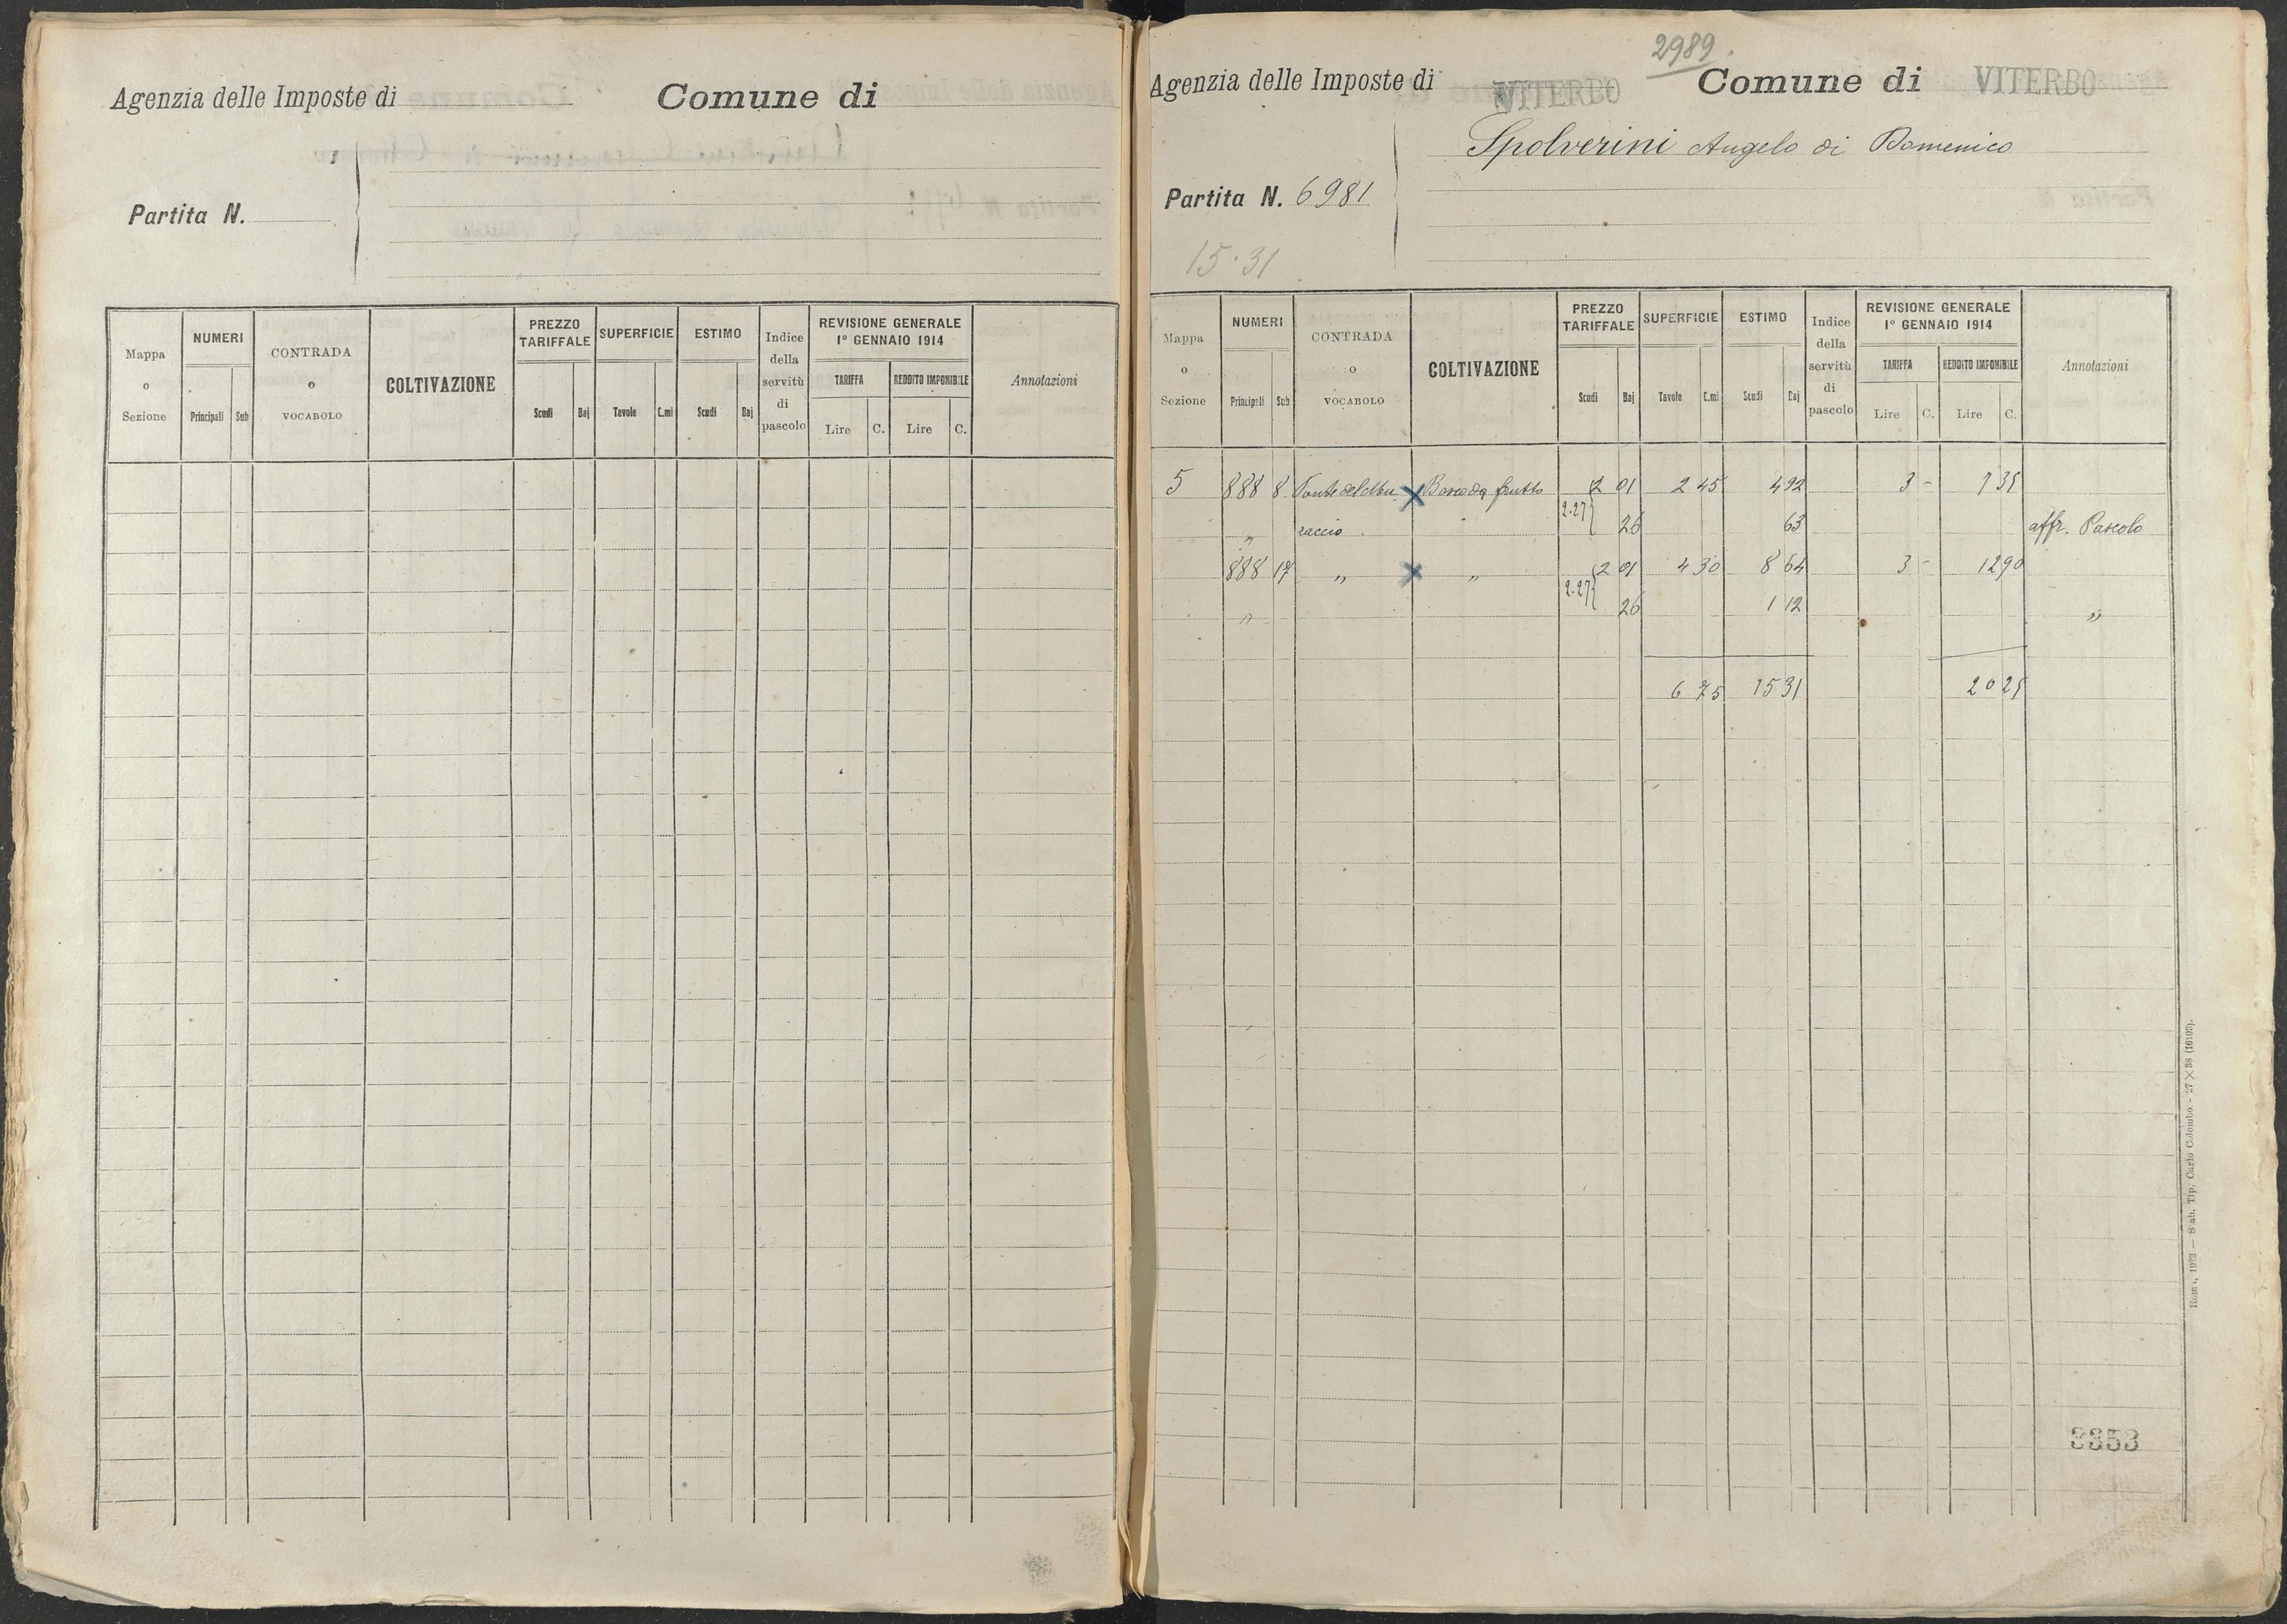 Agenzia delle Imposte di
Comune di
Partita N.
Mappa o Sezione
NUMERI
Principali Sub
CONTRADA o VOCABOLO
COLTIVAZIONE
PREZZO TARIFFALE
Scudi Baj
SUPERFICIE
Tavole C.mi
ESTIMO
Scudi Baj
Indice della servitù di pascolo
REVISIONE GENERALE 1° GENNAIO 1914
TARIFFA
Lire C.
REDDITO IMPONIBILE
Lire C.
Annotazioni
2989.
Agenzia delle Imposte di VITERBO Comune di VITERBO
Spolverini Angelo di Domenico
Partita N. 6981
15.31
Mappa o Sezione
NUMERI
Principali Sub
CONTRADA o VOCABOLO
COLTIVAZIONE
PREZZO TARIFFALE
Scudi Baj
SUPERFICIE
Tavole C.mi
ESTIMO
Scudi Baj
Indice della servitù di pascolo
REVISIONE GENERALE 1° GENNAIO 1914
TARIFFA
Lire C.
REDDITO IMPONIBILE
Lire C.
Annotazioni
5 888 8 X Bosco da frutto 2 01 2 45 4 92 3 - 7 35
" raccio 2.27 26 63 affr. Pascolo
888 17 " X " 2 01 4 30 8 64 3 - 12 90
" 2.27 26 1 12 "
6 75 15 31 20 25
Roma, 1923 — Stab. Tip. Carlo Colombo - 27 X 38 (16102).
3353